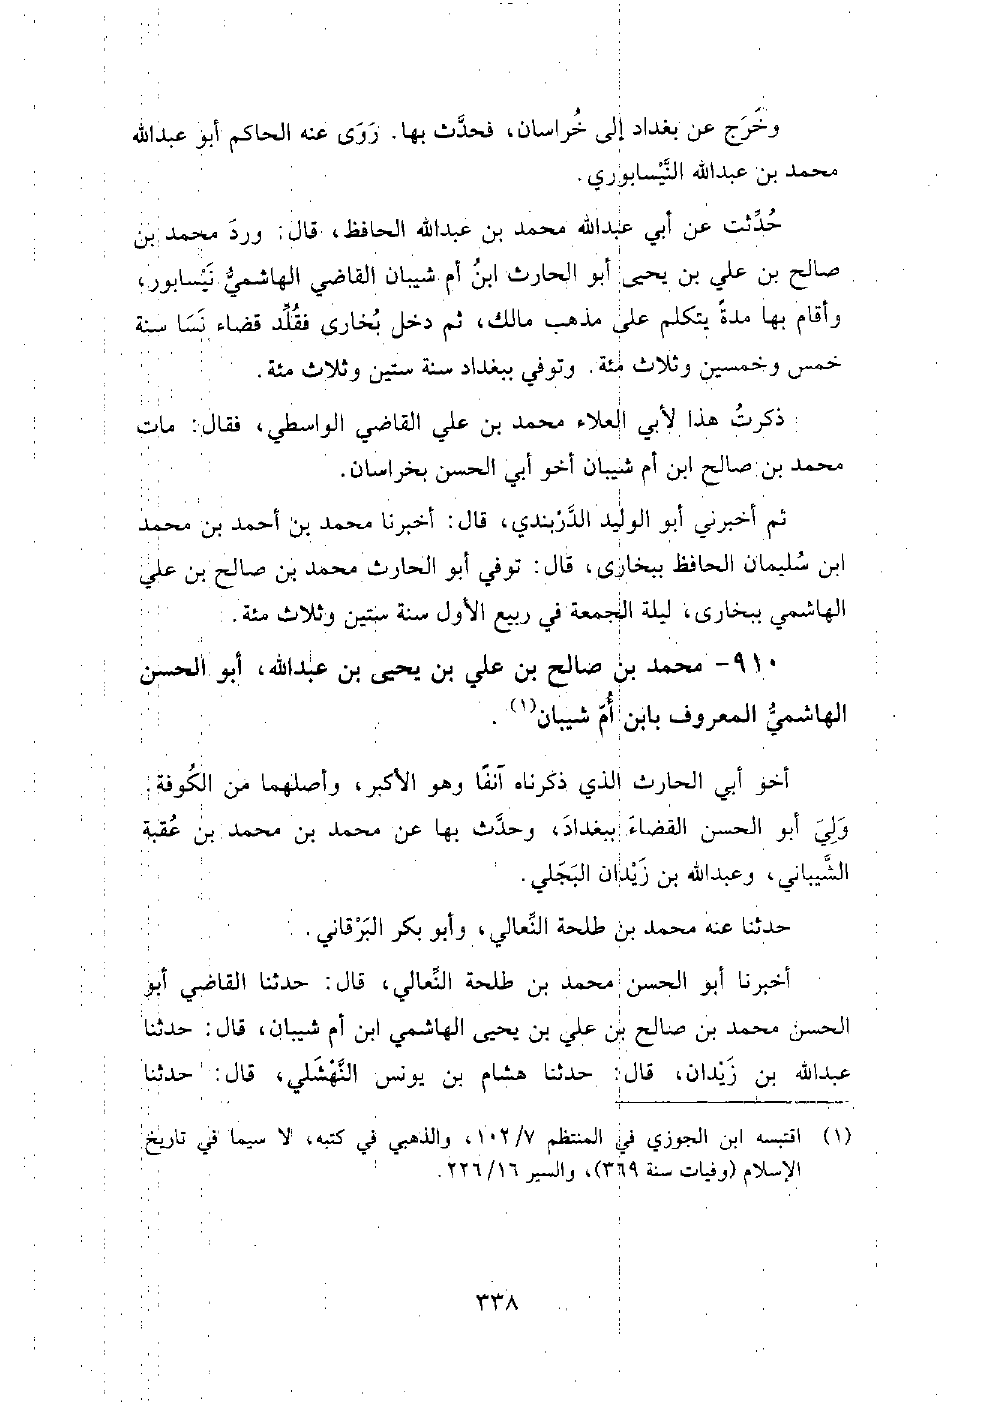 وخَرَج عن بغداد إلى خُراسان، فحدَّث بها. رَوَى عنه الحاكم أبو عبدالله
محمد بن عبدالله النَّيْسابوري.
حُدِّثت عن أبي عبدالله محمد بن عبدالله الحافظ، قال: وردَ محمد بن
صالح بن علي بن يحيى أبو الحارث ابنُ أم شيبان القاضي الهاشميُّ نَيْسابور،
وأقام بها مدةً يتكلم على مذهب مالك، ثم دخل بُخارى فقُلِّد قضاء نَسَا سنة
خمس وخمسين وثلاث مئة. وتوفي ببغداد سنة ستين وثلاث مئة.
ذكرتُ هذا لأبي العلاء محمد بن علي القاضي الواسطي، فقال: مات
محمد بن صالح ابن أم شيبان أخو أبي الحسن بخراسان.
ثم أخبرني أبو الوليد الدَّرْبندي، قال: أخبرنا محمد بن أحمد بن محمد
ابن سُليمان الحافظ ببخارى، قال: توفي أبو الحارث محمد بن صالح بن علي
الهاشمي ببخارى، ليلة الجمعة في ربيع الأول سنة ستين وثلاث مئة.
٩١٠- محمد بن صالح بن علي بن يحيى بن عبدالله، أبو الحسن
الهاشميُّ المعروف بابن أُمّ شيبان(١).
أخو أبي الحارث الذي ذكرناه آنفًا وهو الأكبر، وأصلهما من الكُوفة:
وَلِيَ أبو الحسن القضاءَ ببغدادَ، وحدَّث بها عن محمد بن محمد بن عُقبة
الشَّيباني، وعبدالله بن زَيْدان البَجَلي.
حدثنا عنه محمد بن طلحة النِّعالي، وأبو بكر البَرْقاني.
أخبرنا أبو الحسن محمد بن طلحة النِّعالي، قال: حدثنا القاضي أبو
الحسن محمد بن صالح بن علي بن يحيى الهاشمي ابن أم شيبان، قال: حدثنا
عبدالله بن زَيْدان، قال: حدثنا هشام بن يونس النَّهْشَلي، قال: حدثنا
(١) اقتبسه ابن الجوزي في المنتظم ٧/ ١٠٢، والذهبي في كتبه، لا سيما في تاريخ
الإسلام (وفيات سنة ٣٦٩)، والسير ١٦/ ٢٢٦.
٣٣٨